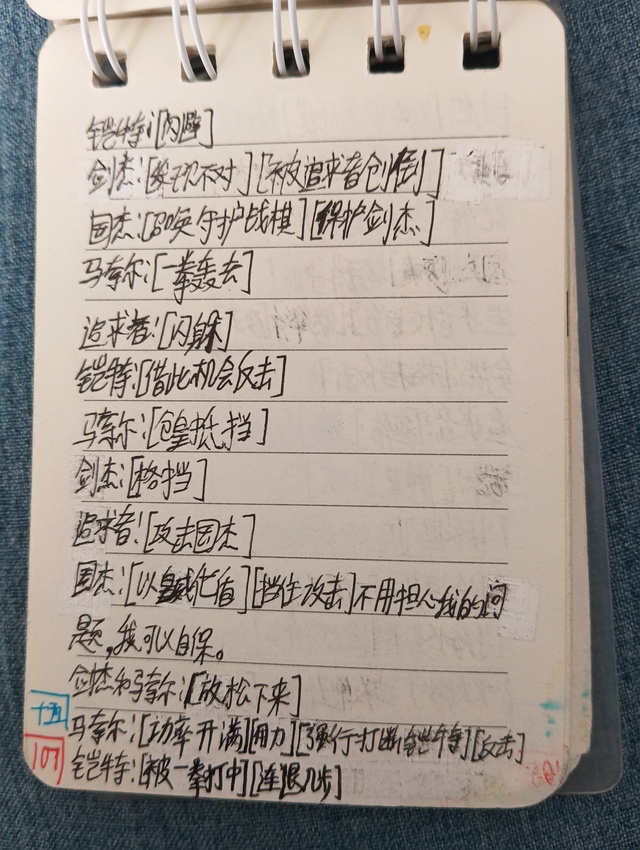 铠特:[闪避]
剑杰:[发现不对][被追求者创倒]
国杰:[召唤守护战棋][保护剑杰]
马奎尔:[一拳轰去]
追求者:[闪躲]
铠特:[借此机会反击]
马奎尔:[仓皇抵挡]
剑杰:[格挡]
追求者:[攻击国杰]
国杰:[以皇威化盾][挡住攻击]不用担心我的问
题,我可以自保。
剑杰和马奎尔:[放松下来]
十五
马奎尔:[功率开满][用力][强行打断铠特][反击]
107
铠特:[被一拳打中][连退几步]